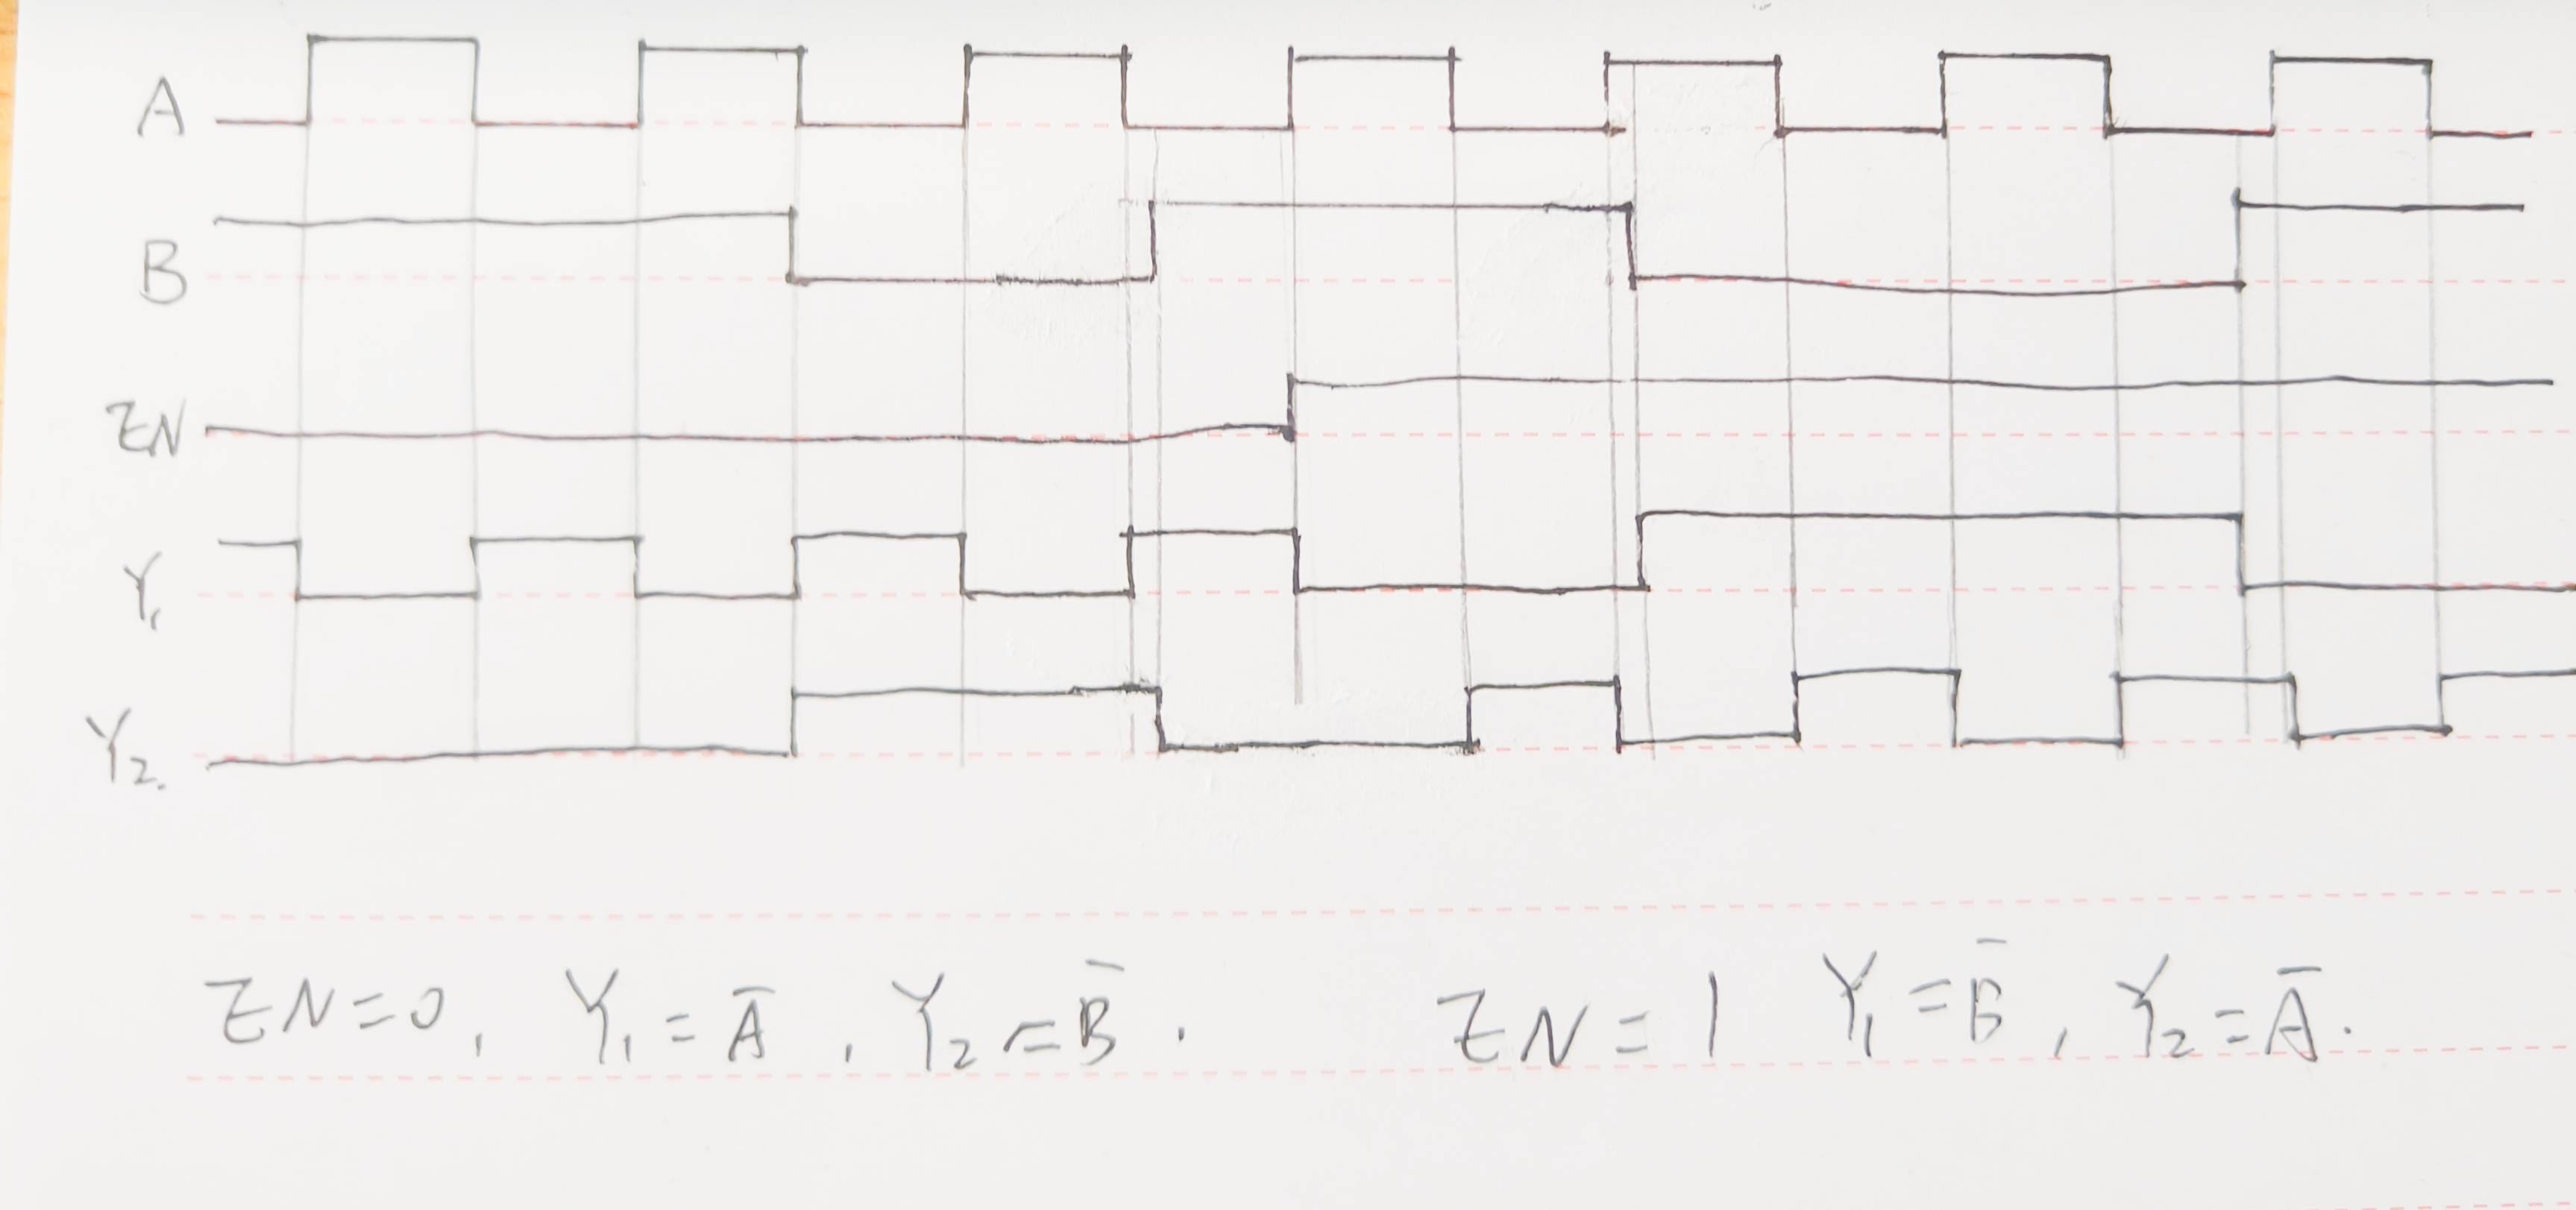 A
B
EN
Y₁
Y₂.
EN=0, Y₁=Ā, Y₂=B̄. EN=1 Y₁=B̄, Y₂=Ā.